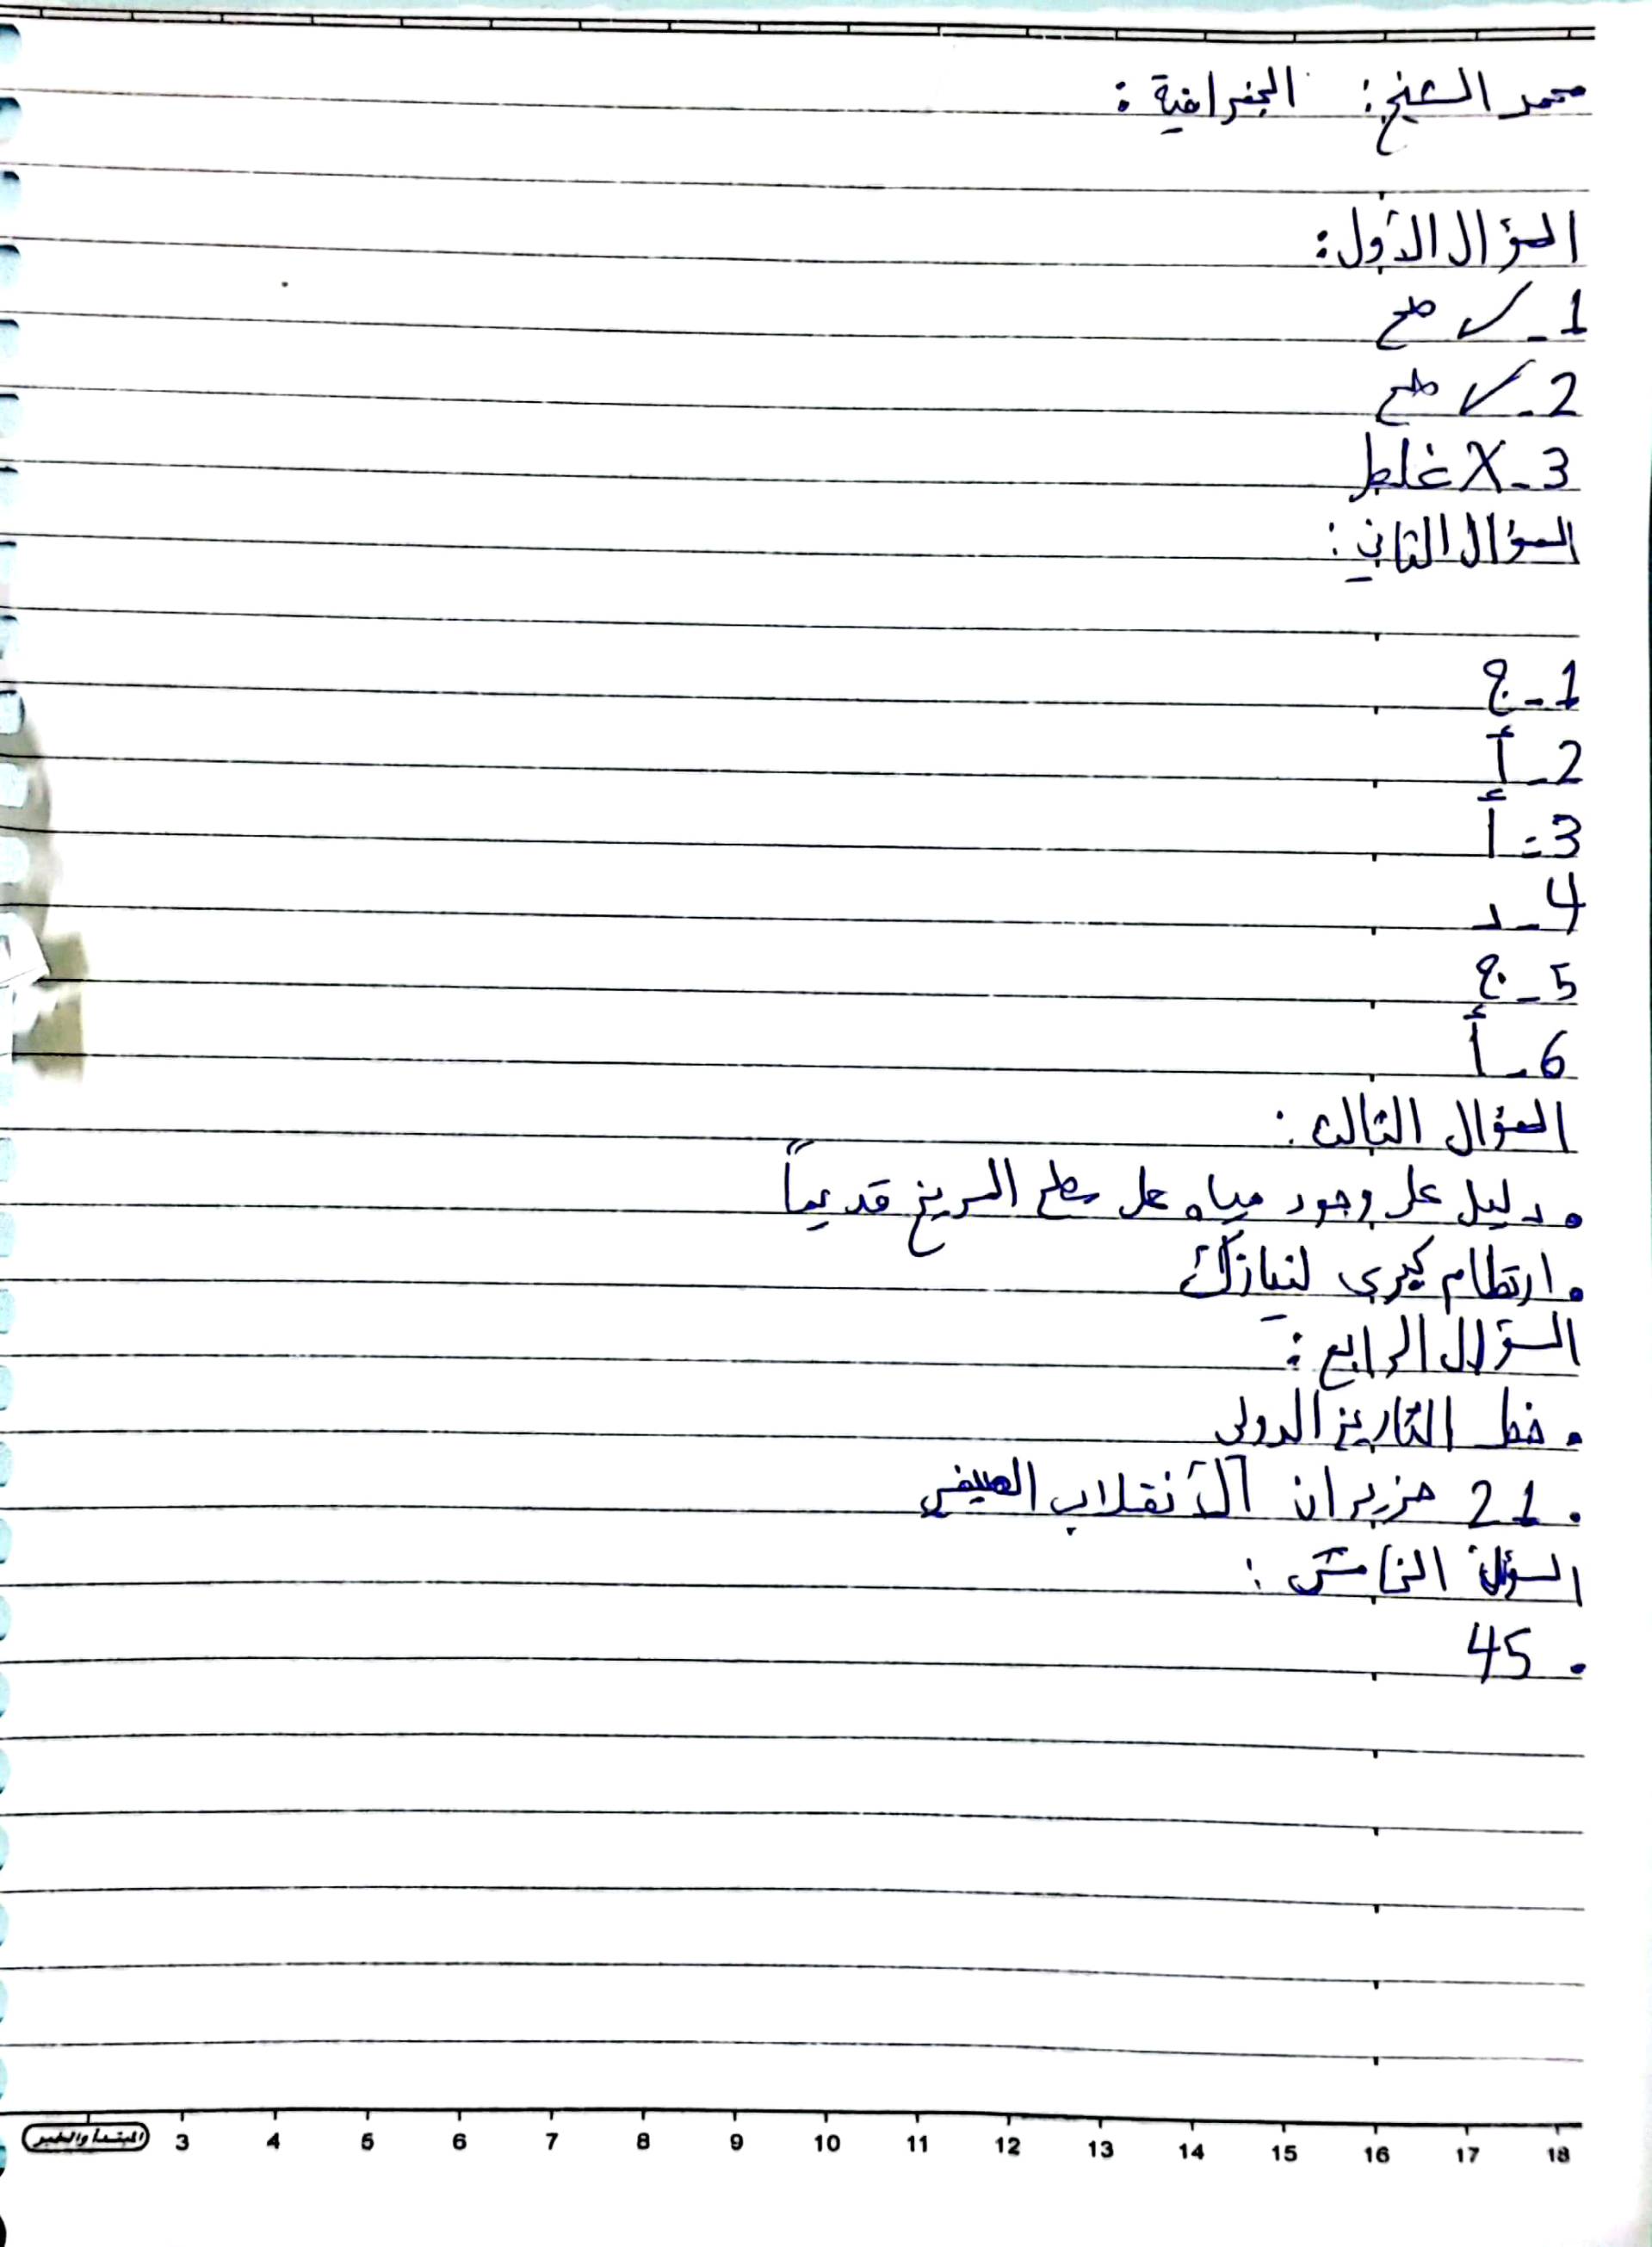 محمد الشيخ: الجغرافية:
السؤال الأول:
1 - ✓ صح
2 - ✓ صح
3 - X غلط
السؤال الثاني:
1 - ج
2 - أ
3 - أ
4 - د
5 - ج
6 - أ
السؤال الثالث:
• دليل على وجود مياه على سطح المريخ قديماً
• ارتطام كبرى لنيازك
السؤال الرابع:
• خط التاريخ الدولي
• 21 حزيران الأنقلاب الصيفي
السؤال الخامس:
• 45
المبتدأ والخبر 3 4 5 6 7 8 9 10 11 12 13 14 15 16 17 18